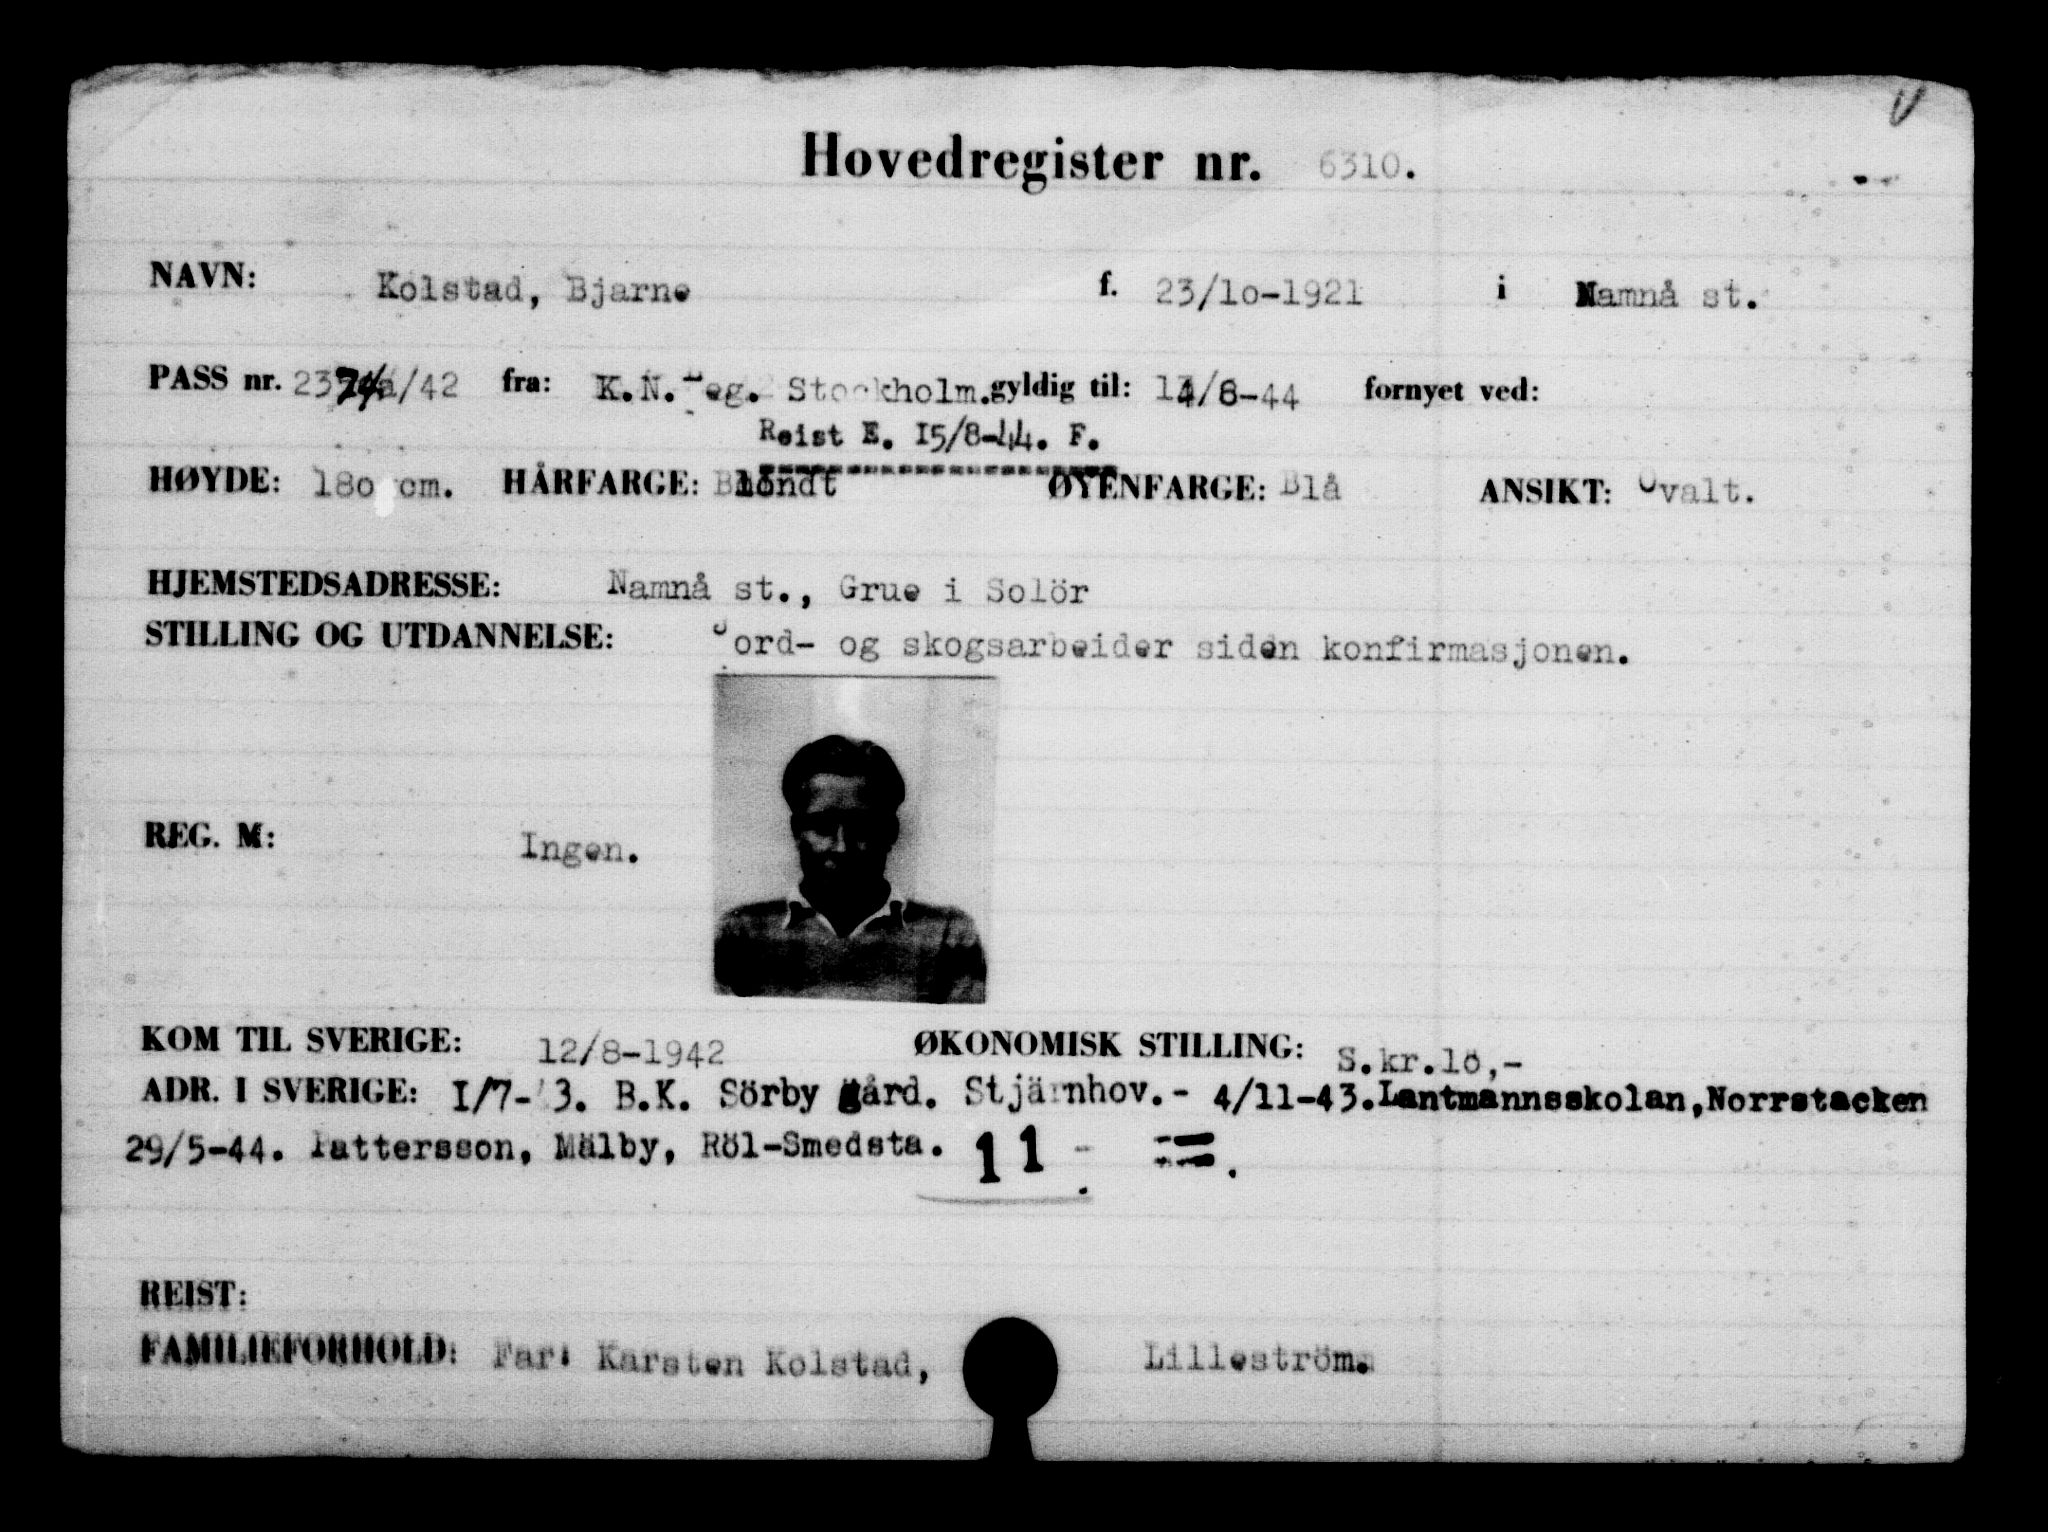 Hovedregister nr. 6310.
NAVN: Kolstad, Bjarne f. 23/1o-1921 i Namnå st.
PASS nr. 2374a/42 fra: K.N.Leg. Stockholm. gyldig til: 14/8-44 fornyet ved:
Reist E. 15/8-44. F.
HØYDE: 18o cm. HÅRFARGE: Blondt ØYENFARGE: Blå ANSIKT: Ovalt.
HJEMSTEDSADRESSE: Namnå st., Grue i Solör
STILLING OG UTDANNELSE: Jord- og skogsarbeider siden konfirmasjonen.
REG. M: Ingen.
KOM TIL SVERIGE: 12/8-1942 ØKONOMISK STILLING: S.kr.lo,-
ADR. I SVERIGE: I/7-43. B.K. Sörby gård. Stjärnhov.- 4/11-43.Lantmannsskolan,Norrstacken
29/5-44. Pattersson, Mälby, Röl-Smedsta. 11
REIST:
FAMILIEFORHOLD: Far: Karsten Kolstad, Lilleström.